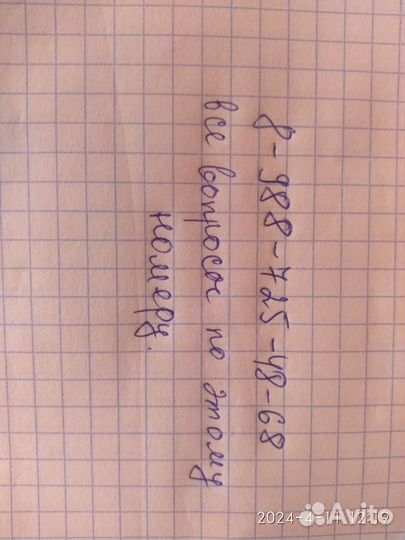 8-988-725-48-68
все вопросы по этому
номеру.
2024-4-11 12:19
Avito